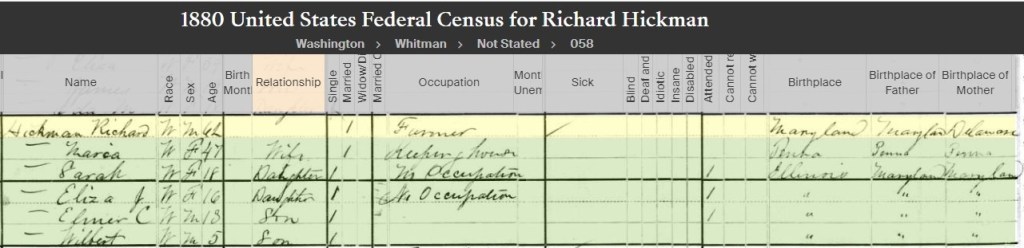 1880 United States Federal Census for Richard Hickman
Washington > Whitman > Not Stated > 058
Name Race Sex Age Birth Mont Relationship Single Married Widow/Di Married O Occupation Mont Unem Sick Blind Deaf and Idiotic Insane Disabled Attended Cannot re Cannot w Birthplace Birthplace of Father Birthplace of Mother
Hickman Richard W M 1 Farmer Maryland Maryland Delaware
— Maria W F 47 Wife 1 Keeping house Penna Penna Penna
— Sarah W F 18 Daughter 1 No Occupation 1 Illinois Maryland Maryland
— Eliza J. W F 16 Daughter 1 No Occupation 1 " " "
— Elmer C W M 13 Son 1 1 " " "
— Wilbert W M 5 Son 1 " " "